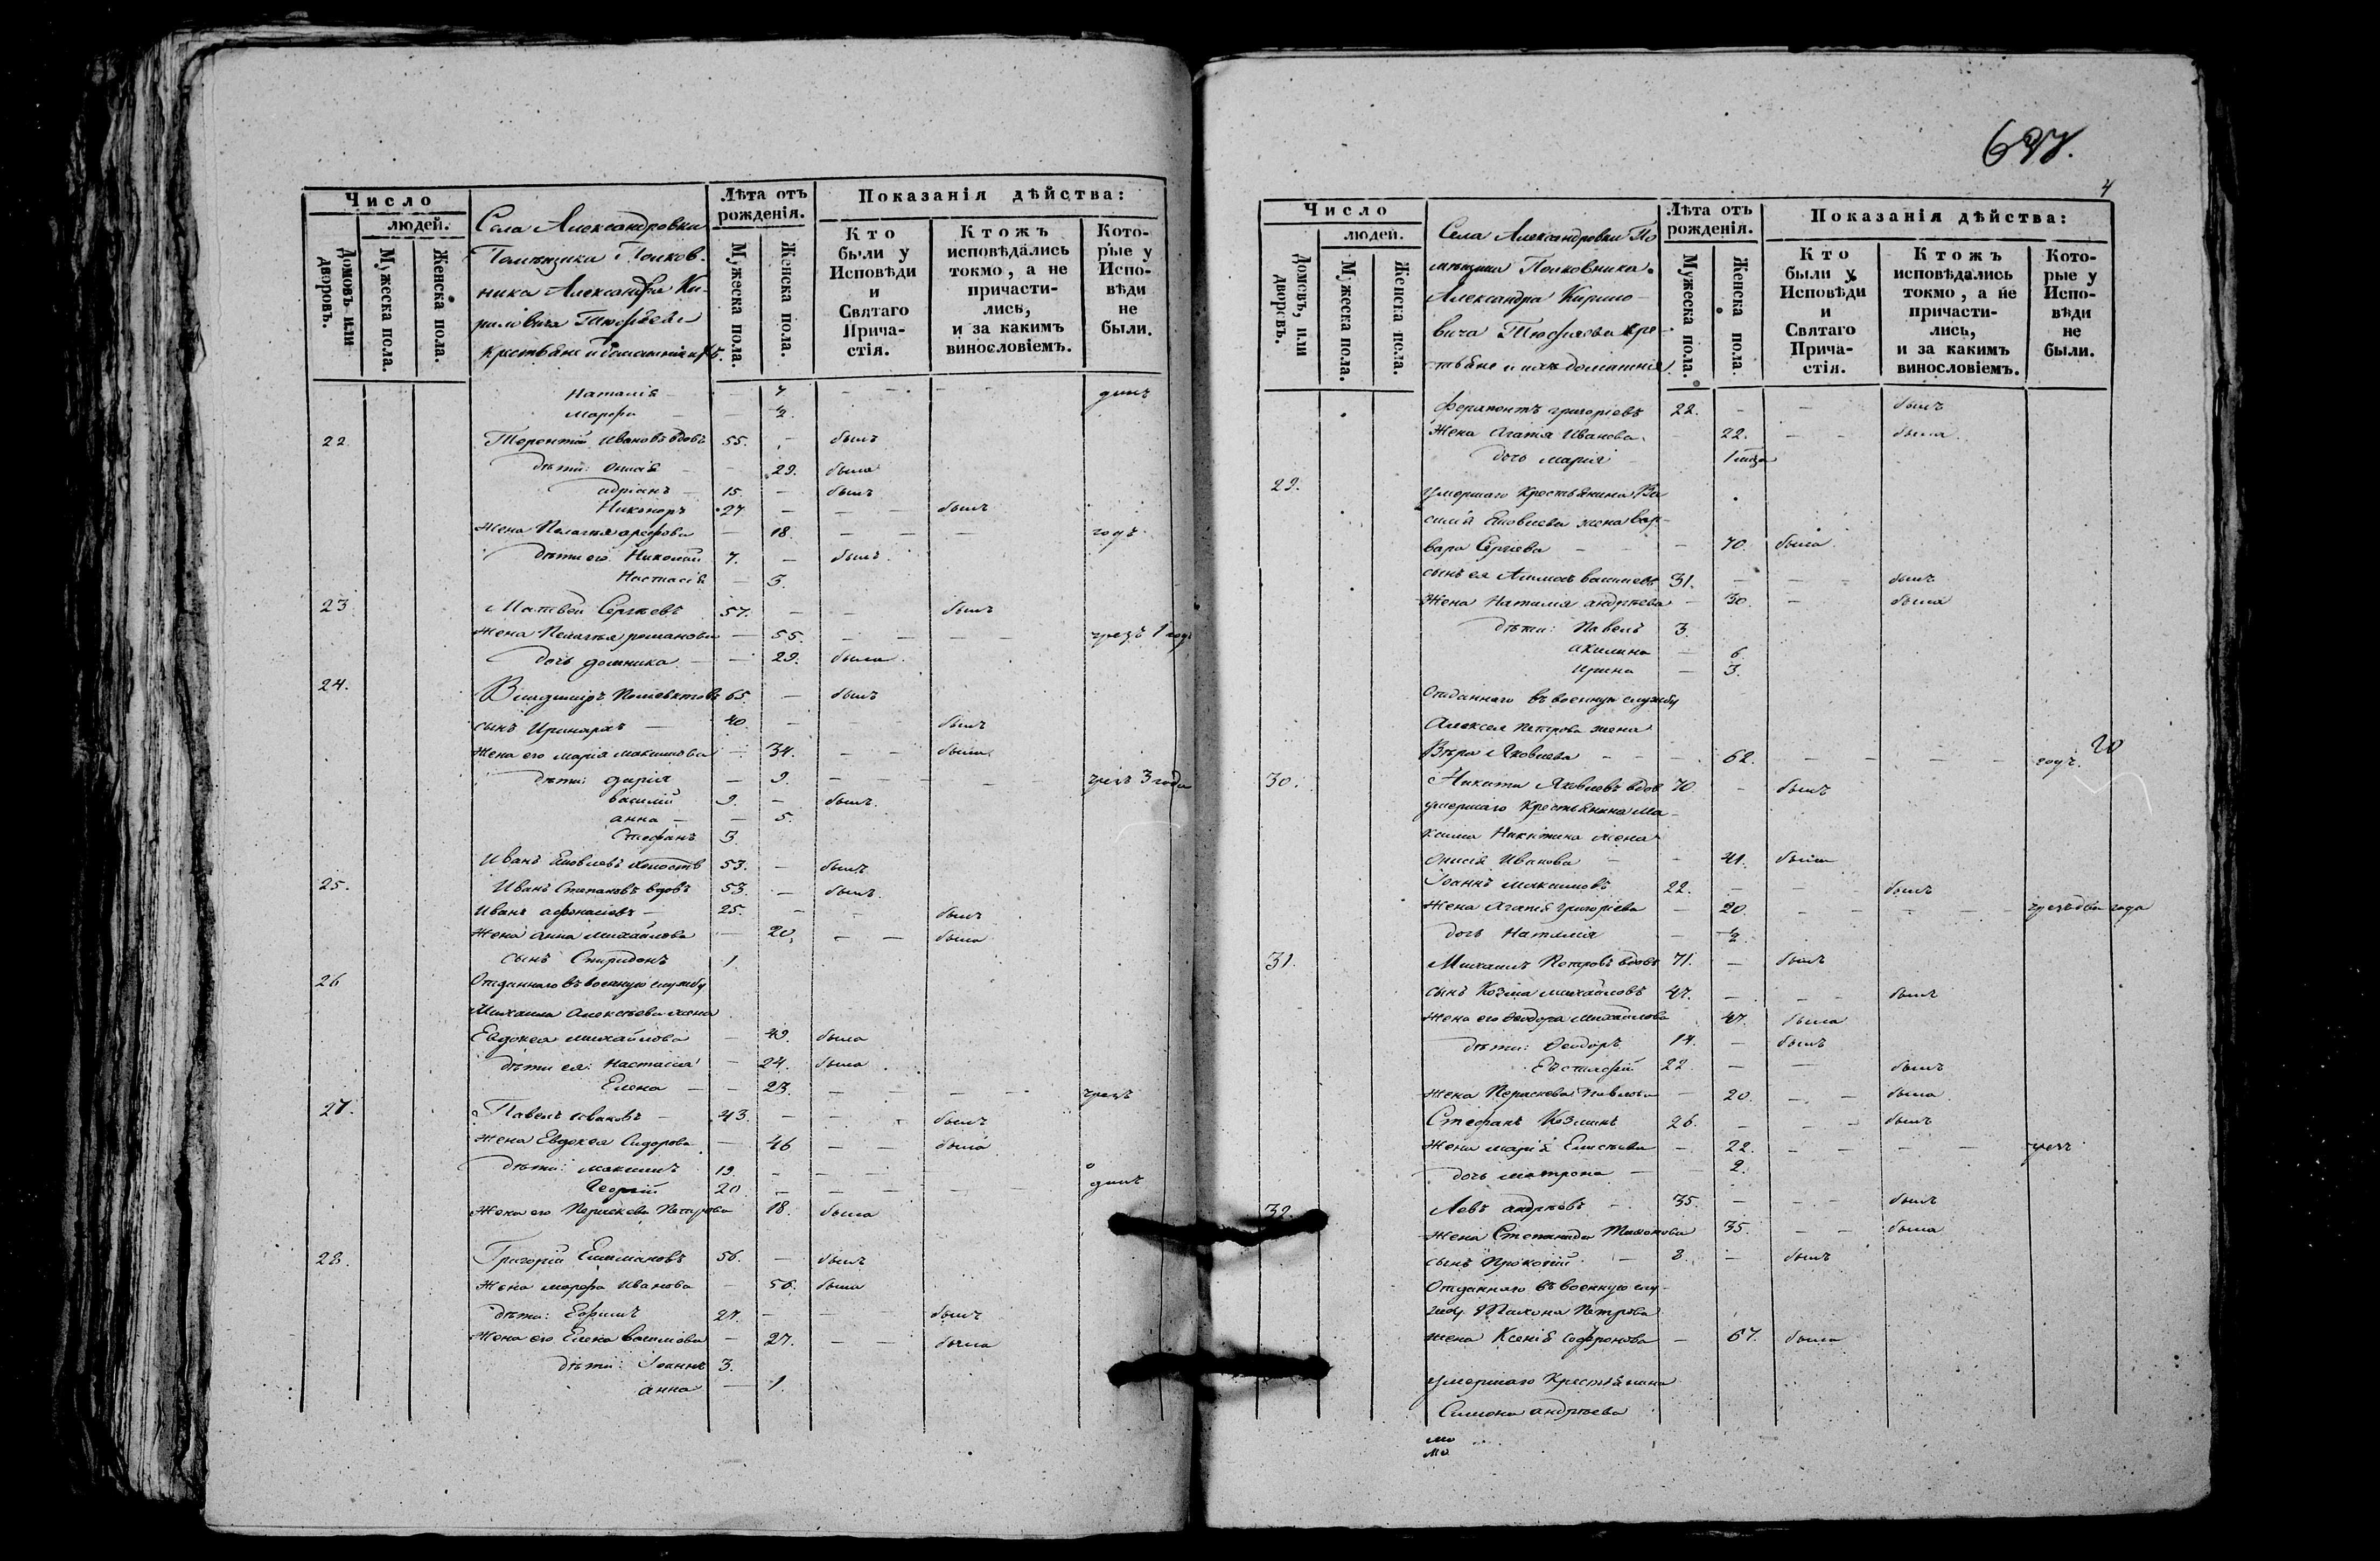 Число
людей.
Домовъ или дворовъ.
Мужеска пола.
Женска пола.
Села Александровки
Помѣщика Полков-
ника Александра Ки-
риловича
крестьяне и домашнiе ихъ.
Лѣта отъ рожденія.
Мужеска пола.
Женска пола.
Показанія дѣйства:
Кто были у Исповѣди и Святаго Прича-стія.
Ктожъ исповѣдались токмо, а не причасти-лись, и за какимъ винословіемъ.
Кото-рые у Испо-вѣди не были.
Наталія - - 7 - - - -
Марфа - - 2.
22. Терентій Ивановъ вдовъ 55. - былъ
дѣти: Онисія - - 29. была
Адріанъ - 15. - былъ
Никоноръ 27 - - - былъ
Жена Пелагія Арефова - 18. - - - годъ
дѣти его Николай 7. - былъ.
Настасія - 3.
23. Матвей Сергѣевъ 57. - - былъ
Жена Пелагія Романова - 55. - - - - чрезъ 1 годъ
дочь Домника - - 29. была.
24. Владимiръ Полѣвктовъ 65. - былъ
сынъ Иринархъ - 40. - былъ
Жена его Марія Максимова - 34. - - была.
дѣти: Дарія - 9. - - - - чрезъ 3 года
Василій 9. - былъ.
Анна - - 5.
Стефанъ 3.
Иванъ Яковлевъ холостъ 53. - былъ
25. Иванъ Степановъ вдовъ 53. - былъ.
Иванъ Афонасіевъ - 25. - - былъ
Жена Анна Михайлова - 20. - - была
сынъ Спиридонъ 1.
26 Отданнаго въ военную службу
Михаила Алексѣева жена
Евдокея Михайлова - 49. была
дѣти ея: Настасія - 24. была
Елена - - 23. - - - чрезъ
27. Павелъ Ивановъ - 43. - - - былъ
Жена Евдокея Сидорова - 46 - - была
дѣти: Максимъ 19. - - -
Георгій 20. - - - -
Жена его Пераскева Петрова 18. была
28. Григорій 56. - былъ
Жена Марфа Иванова - 56. была
дѣти: Ефимъ 27. - - былъ
Жена его Елена Василіева - 27. - - была
дѣти: Іоаннъ 3.
Анна - 1.
637.
4
Число
людей.
Домовъ, или дворовъ.
Мужеска пола.
Женска пола.
Села Александровки По
мѣщика Полковника
Александра Кирило-
вича кре-
стьяне и ихъ домашнія
Лѣта отъ рожденія.
Мужеска пола.
Женска пола
Показанія дѣйства:
Кто были у Исповѣди и Святаго Прича-стія.
Ктожъ исповѣдались токмо, а не причасти-лись, и за какимъ винословіемъ.
Кото-рые у Испо-вѣди не были.
Ферапонтъ Григорiевъ 22. - - былъ
Жена Агафія Иванова - 22. - - была.
дочь Марія - 1
29. умершаго Крестьянина Ва
силія Яковлева жена Вар-
вара Сергіева - - - 70. была
сынъ ея Василіевъ 31. - - - былъ
Жена Наталія Андрѣева - 30. - была
дѣти: Павелъ 3.
Акилина - 6
Ирина - 3.
Отданнаго въ военную службу
Алексѣя Петрова жена
Вѣра Яковлева - - - 62. - - - - годъ.
20
30. Никита Яковлевъ вдовъ 70 - былъ
умершаго Крестьянина Ма-
ксима Никитина жена
Онисія Иванова - - 41. была
Іоаннъ Максимовъ 22. - - былъ
Жена Агафія Григорiева - 20. - - - - - чрезъ два года
дочь Наталія - 2.
31. Михаилъ Петровъ вдовъ 71. - былъ
сынъ Козма Михайловъ 47. - - - былъ
Жена его Ѳеодора Михайлова 47. была
дѣти: Ѳеодоръ 14. - былъ
Евстафій 22. - - былъ
Жена Пераскева Павлова - 20. - - была
Стефанъ Козминъ 26. - - - былъ
Жена Марія - 22. - - - - чрезъ
дочь Матрона - - 2.
32. Левъ Андрѣевъ - 35. - - былъ
Жена Степанида 35. - - была
сынъ Прокопій - 8. - былъ
Отданнаго въ военную слу-
жбу Петрова
жена Ксенія Софронова - 67. была
умершаго Крестьянина
Симона Андрѣева